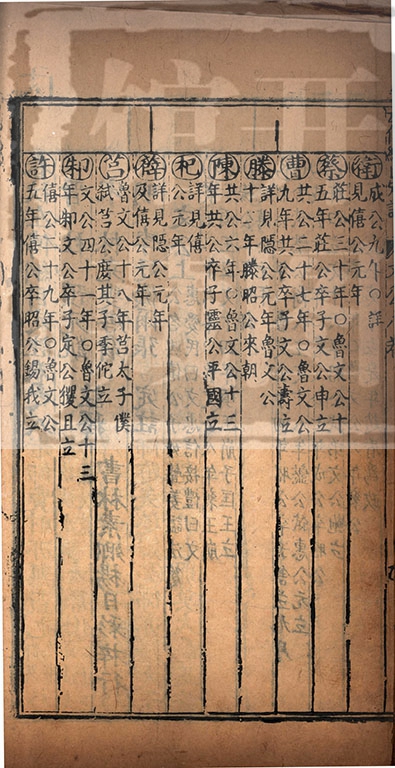 衛
成公九年○詳
見僖公元年
蔡
莊公三十年○魯文公十
五年莊公卒子文公申立
曹
共公二十七年○魯文公
九年共公卒子文公壽立
滕
詳見隱公元年魯文公
十二年滕昭公來朝
陳
共公六年○魯文公十三
年共公卒子靈公平國立
杞
詳見僖
公元年
薛
詳見隱公元年
及僖公元年
莒
魯文公十八年莒太子僕
弒莒公庶其子季佗立
邾
文公四十一年○魯文公十三
年邾文公卒子定公貜且立
許
僖公二十九年○魯文公
五年僖公卒昭公錫我立